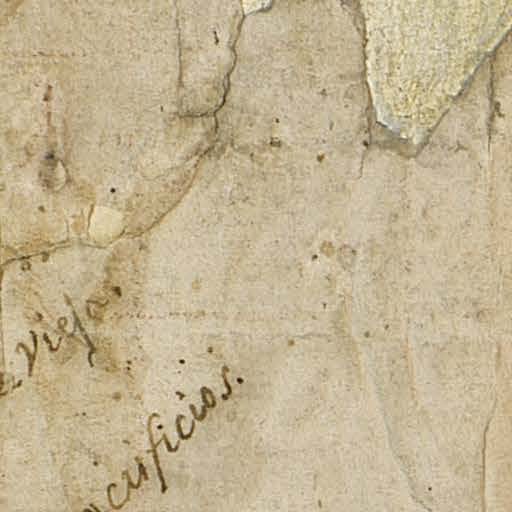 Vieja.
crificios.